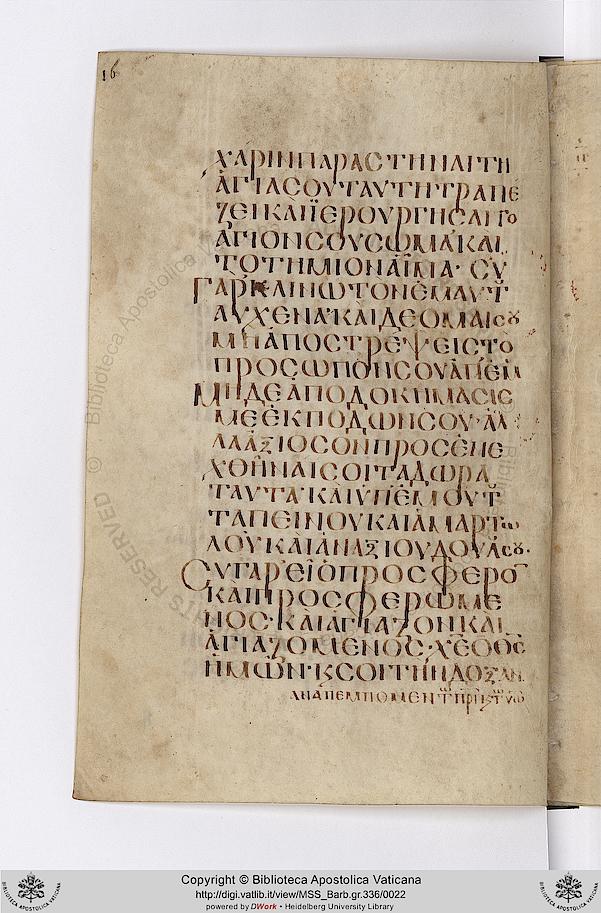 16
ΧΑΡΙΝ ΠΑΡΑΣΤΗΝΑΙ ΤΗ
ἉΓΙΑ ΣΟΥ ΤΑΥΤΗ ΤΡΑΠΕ
ΖΕΙ ΚΑΙ ΪΕΡΟΥΡΓΗΣΑΙ ΤΟ
ἍΓΙΟΝ ΣΟΥ ΣΩΜΑ ΚΑΙ
ΤΟ ΤΗΜΙΟΝ ΑἷΜΑ· ΣΥ
ΓΑΡ ΚΛΙΝΩ ΤΟΝ ἐΜΑΥΤȣ
ΑΥΧΕΝΑ· ΚΑΙ ΔΕΟΜΑΙ Σȣ
ΜΗ ἀΠΟΣΤΡΕΨΕΙΣ ΤΟ
ΠΡΟΣΩΠΟΝ ΣΟΥ ἀΠ ἐΜ
ΜΗΔΕ ἀΠΟΔΟΚΗΜΑΣΙΣ
ΜΕ ἐΚ ΠΟΔΩΝ ΣΟΥ· ἀΛ
ΛΑ ἀΞΙΟΣΟΝ ΠΡΟΣΕΝΕ
ΧΘΗΝΑΙ ΣΟΙ ΤΑ ΔΩΡΑ
ΤΑΥΤΑ· ΚΑΙ ΥΠ ἐΜΟΥ Τȣ
ΤΑΠΕΙΝΟΥ ΚΑΙ ἁΜΑΡΤΩ
ΛΟΥ ΚΑΙ ἀΝΑΞΙΟΥ ΔΟΥΛ Σȣ·
ΣΥ ΓΑΡ ΕἶΟ ΠΡΟΣΦΕΡΟ
ΚΑΙ ΠΡΟΣΦΕΡΩΜΕ
ΝΟΣ· ΚΑΙ ἁΓΙΑΖΟΝ ΚΑΙ
ἁΓΙΑΖΟΜΕΝΟΣ· ΧΕ Ο ΘΣ
ἡΜΩΝ· Κ ΣΟΙ ΤΗΝ ΔΟΞΑΝ
ΑΝΑΠΕΜΠΟΜΕΝ Τῶ ΠΡΙ Κ Τῶ ΥΩ
Copyright © Biblioteca Apostolica Vaticana
http://digi.vatlib.it/view/MSS_Barb.gr.336/0022
powered by DWork - Heidelberg University Library